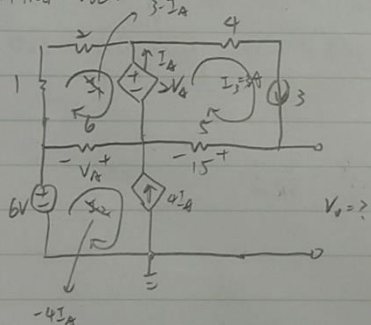 3-I_A
2
I_A
4
1
I_1
2V_A
I_3=3A
3
6
5
- V_A +
- 15 +
6V
I_2
4I_A
V_0=?
-4I_A